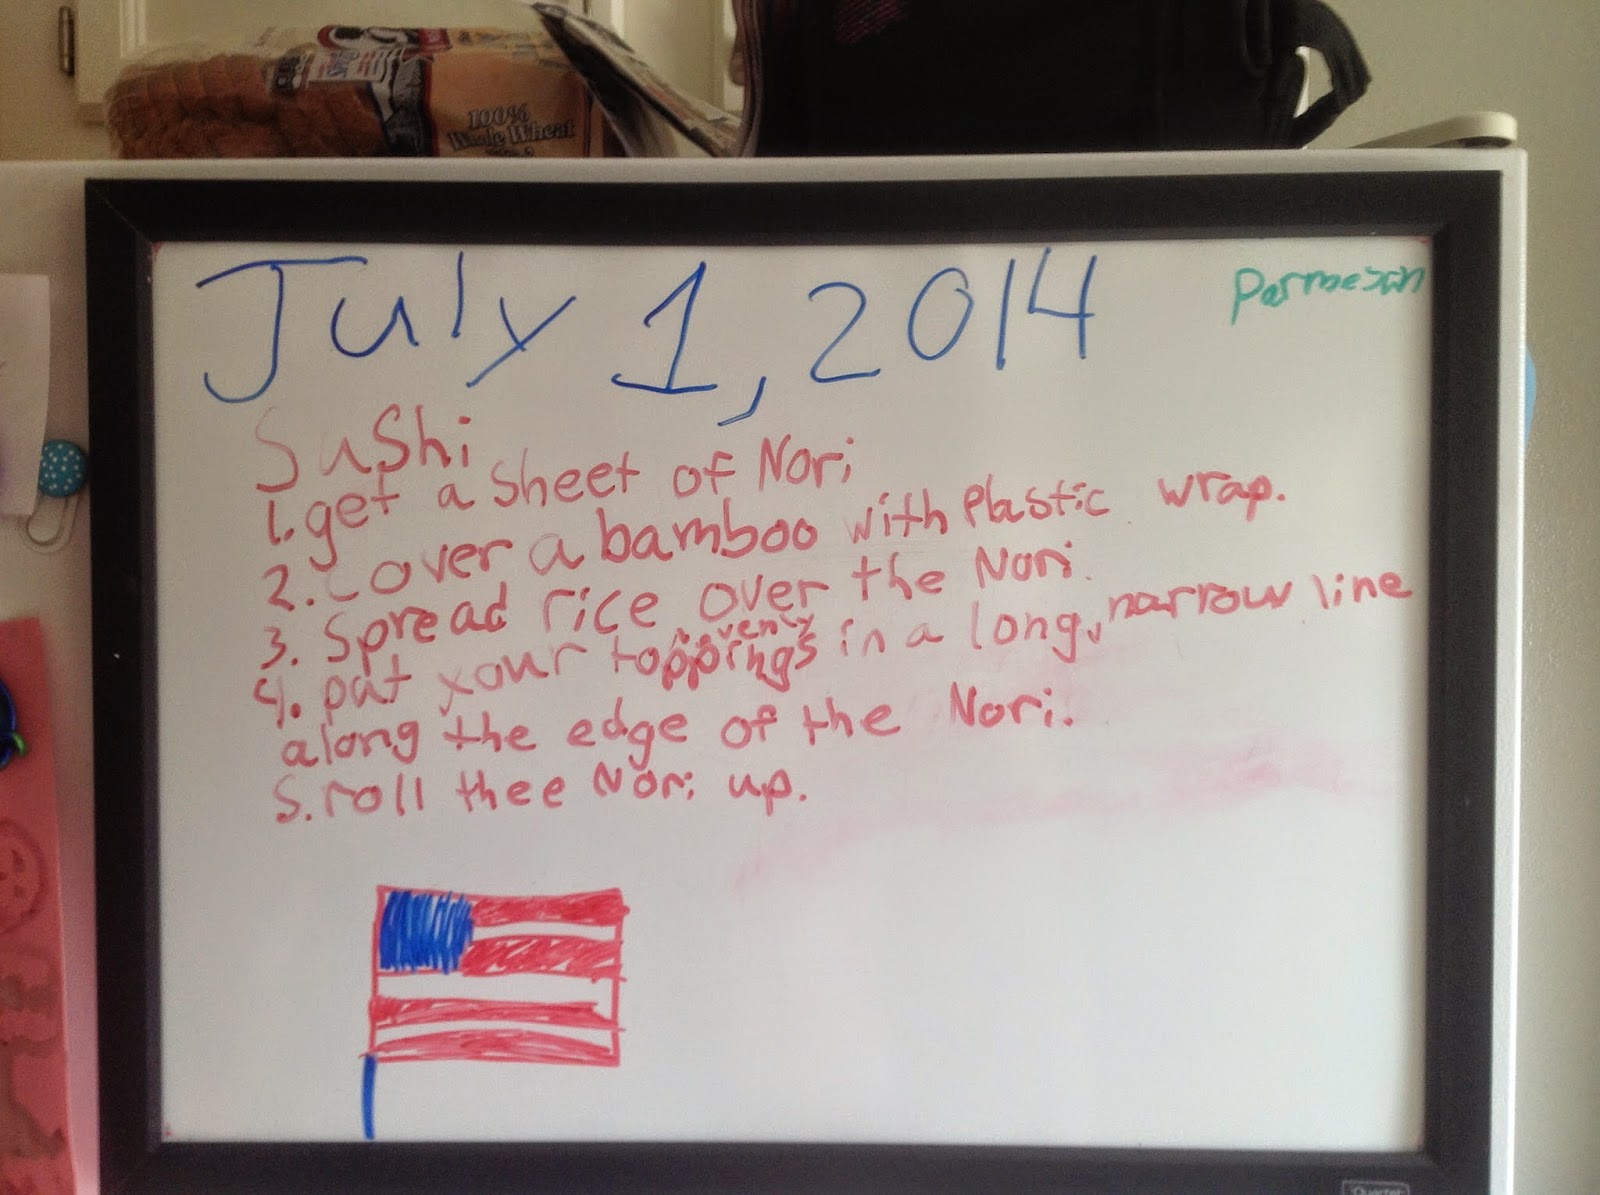 100%
Whole Wheat
July 1, 2014
Parmesan
Sushi
1. get a sheet of Nori
2. Cover a bamboo with Plastic wrap.
3. Spread rice over the Nori.
evenly
4. put your toppings in a long, narrow line
along the edge of the Nori.
5. roll thee Nori up.
Quartet